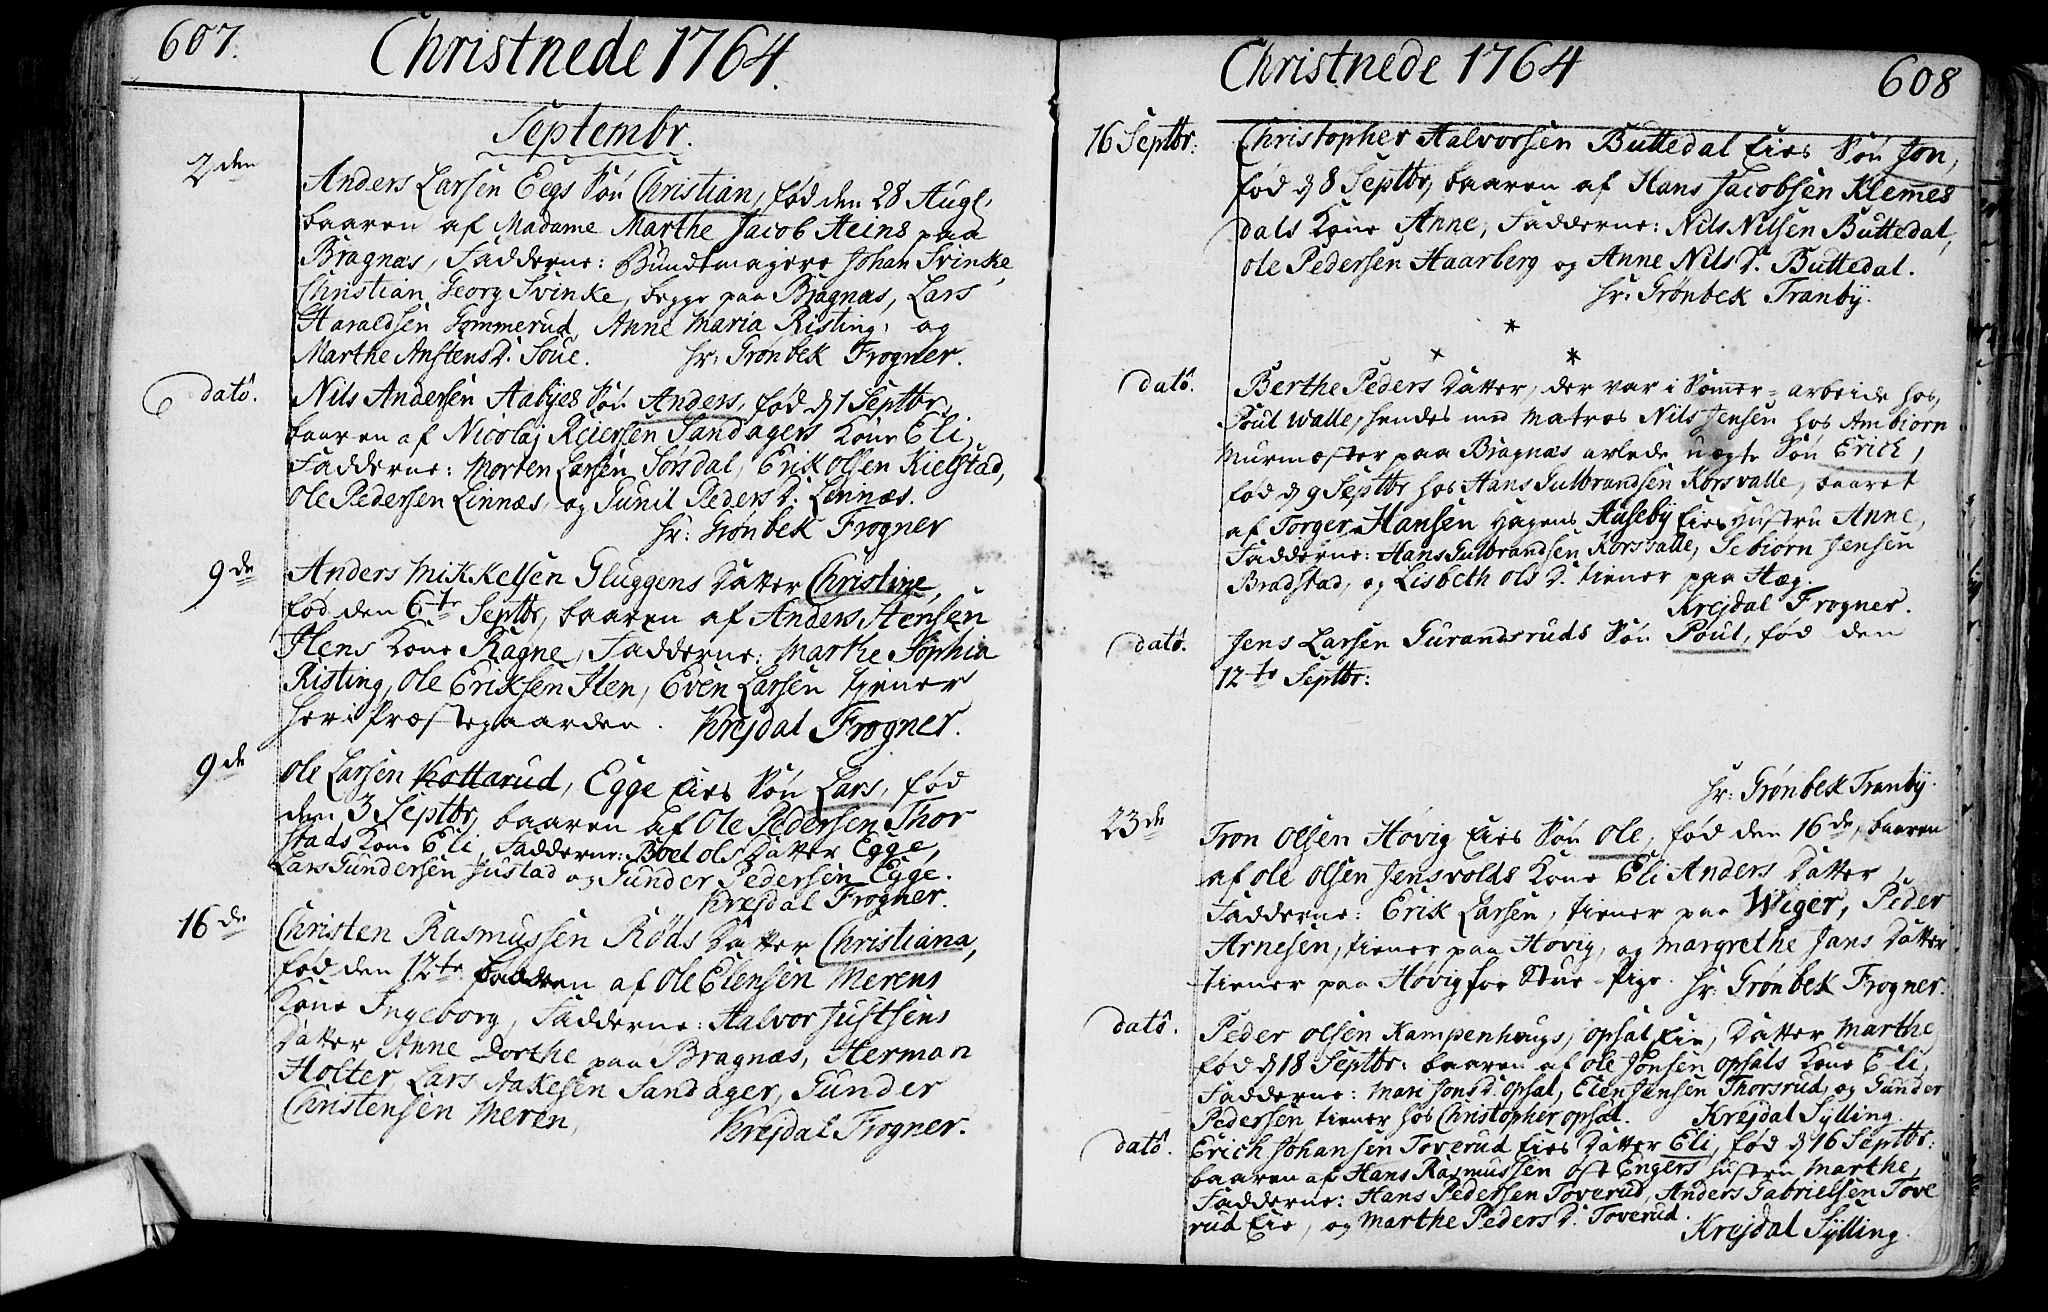 607.
Christnede 1764.
Septembr.
2den
Anders Larsen Eegs Søn Christian, fød den 28 Aug.
baaren af Madame Marthe Jacob Heins paa
Bragnæs, Fadderne: Bundtmagere Johan Svinke,
Christian Georg Svinke, begge paa Bragnæs, Lars
Haraldsen Gommerud, Anne Maria Risting, og
Marthe AnstensD. Soue. Hr: Grønbek Frogner.
dato.
Nils Andersen Aabyes Søn Anders, fød d 1 Septbr,
baaren af Nicolaj Reiersen Sandagers Kone Eli,
Fadderne: Morten Larsen Sørsdal, Erik Olsen Kielstad,
Ole Pedersen Linnæs, og Gunil PedersD. Linnæs.
Hr: Grønbek Frogner
9de
Anders Mikkelsen Gluggens Datter Christine,
fød den 6te Septbr, baaren af Anders Hensen
Ilens Kone Ragne, Fadderne: Marthe Sophia
Risting, Ole Eriksen Ilen, Even Larsen tiener
her i Præstegaarden. Krejdal Frogner.
9de
Ole Larsen Kottarud, Egge Eies Søn Lars, fød
den 3 Septbr, baaren af Ole Pedersen Thor
stads Kone Eli, Fadderne: Boel Ols Datter Egge,
Lars Gundersen Justad og Gunder Pedersen Egge.
Krejdal Frogner.
16de
Christen Rasmussen Röds Datter Christiana,
fød den 12te baaren af Ole Elensen Merens
Kone Ingeborg, Fadderne: Halvor Justsens
Datter Anne Dorthe paa Bragnæs, Herman
Holter, Lars Aakesen Sandager, Gunder
Christensen Meren,
Krejdal Frogner.
Christnede 1764
608
16 Septbr:
Christopher Halvorsen Buttedal Eies Søn Jon,
fød d 8 Septbr, baaren af Hans Jacobsen Klemes
dals Kone Anne, Fadderne: Nils Nilsen Buttedal,
Ole Pedersen Haarberg og Anne NilsD. Buttedal.
Hr: Grønbek Tranby.
dato.
Berthe Peders Datter, der var i Somer-arbeide hos,
Poul Walle, hendes med Matros Nils Jensen hos Ambiørn
Murmester paa Bragnæs avlede uægte Søn Erich,
fød d 9 Septbr hos Hans Gulbrandsen Korsvalle, baaret
af Torger Hansen Hagens Huseby Eies Hustru Anne,
Fadderne: Hans Gulbrandsen Korsvalle, Gebiørn Jensen
Bradstad, og Lisbeth OlsD. tiener paa Hæg.
Krejdal Frogner.
dato.
Jens Larsen Gurandsruds Søn Poul, fød den
12te Septbr:
Hr: Grønbek Tranby.
23de
Tron Olsen Hovig Eies Søn Ole, fød den 16de, baaren
af Ole Olsen Jensvolds Kone Eli Anders Datter,
Fadderne: Erik Larsen, tiener paa Wiger, Peder
Arnesen, tiener paa Hovig, og Margrethe Jans Datter
tiener paa Hovig for Stue-Pige. Hr: Grønbek Frogner.
dato.
Peder Olsen Kampenhougs, Opsal Eie, Datter Marthe
fød d 18 Septbr: baaren af Ole Jonsen Opsals Kone Eli,
Fadderne: Mari JonsD. Opsal, Elen Jensen Thorsrud, og Gunder
Pedersen tiener hos Christopher Opsal. Krejdal Sylling.
dato.
Erich Johansen Toverud Eies Datter Eli, fød d 16 Septbr:
baaren af Hans Rasmussen Øst Engers Hustru Marthe,
Fadderne: Hans Pedersen Toverud, Anders Gabrielsen Tove
rud Eie, og Marthe PedersD. Toverud.
Krejdal Sylling.